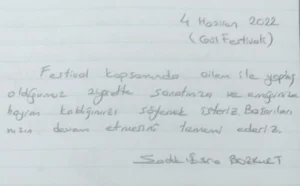 4 Haziran 2022
(Gül Festivali)
Festival kapsamında ailem ile yapmış
olduğumuz ziyarette sanatınıza ve emeğinize
hayran kaldığımızı söylemek isteriz. Başarıları
nızın devam etmesini temenni ederiz.
Sadık Esra BOZKURT